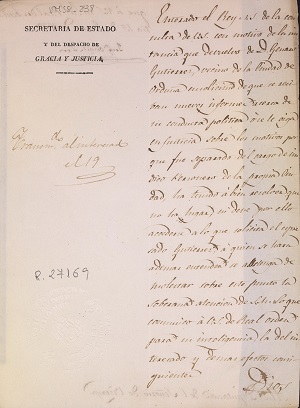 SECRETARIA DE ESTADO
Y DEL DESPACHO DE
GRACIA Y JUSTICIA,
al interesad
el 19
R. 27169
Enterado el Rey de la con
sulta de con motivo de la ins
tancia que devuelvo de D.
Gutierrez, vecino de la Ciudad de
Orduña en solicitud de que se reci
ban nuevos informes acerca de
su conducta politica ó se le oiga
en Justicia sobre los motivos por
que fue separado del cargo de Sin
dico de la propia Ciu
dad, ha tenido á bien resolver que
no ha lugar en deber por ello
acceder a lo que solicita el espre
sado Gutierrez á quien se hará
ademas entender se abstenga de
molestar sobre este punto la
soberana atencion de S. M. Lo que
comunico á de Real orden
para su inteligencia, la del in
teresado y demas efectos consi
guientes. Dios